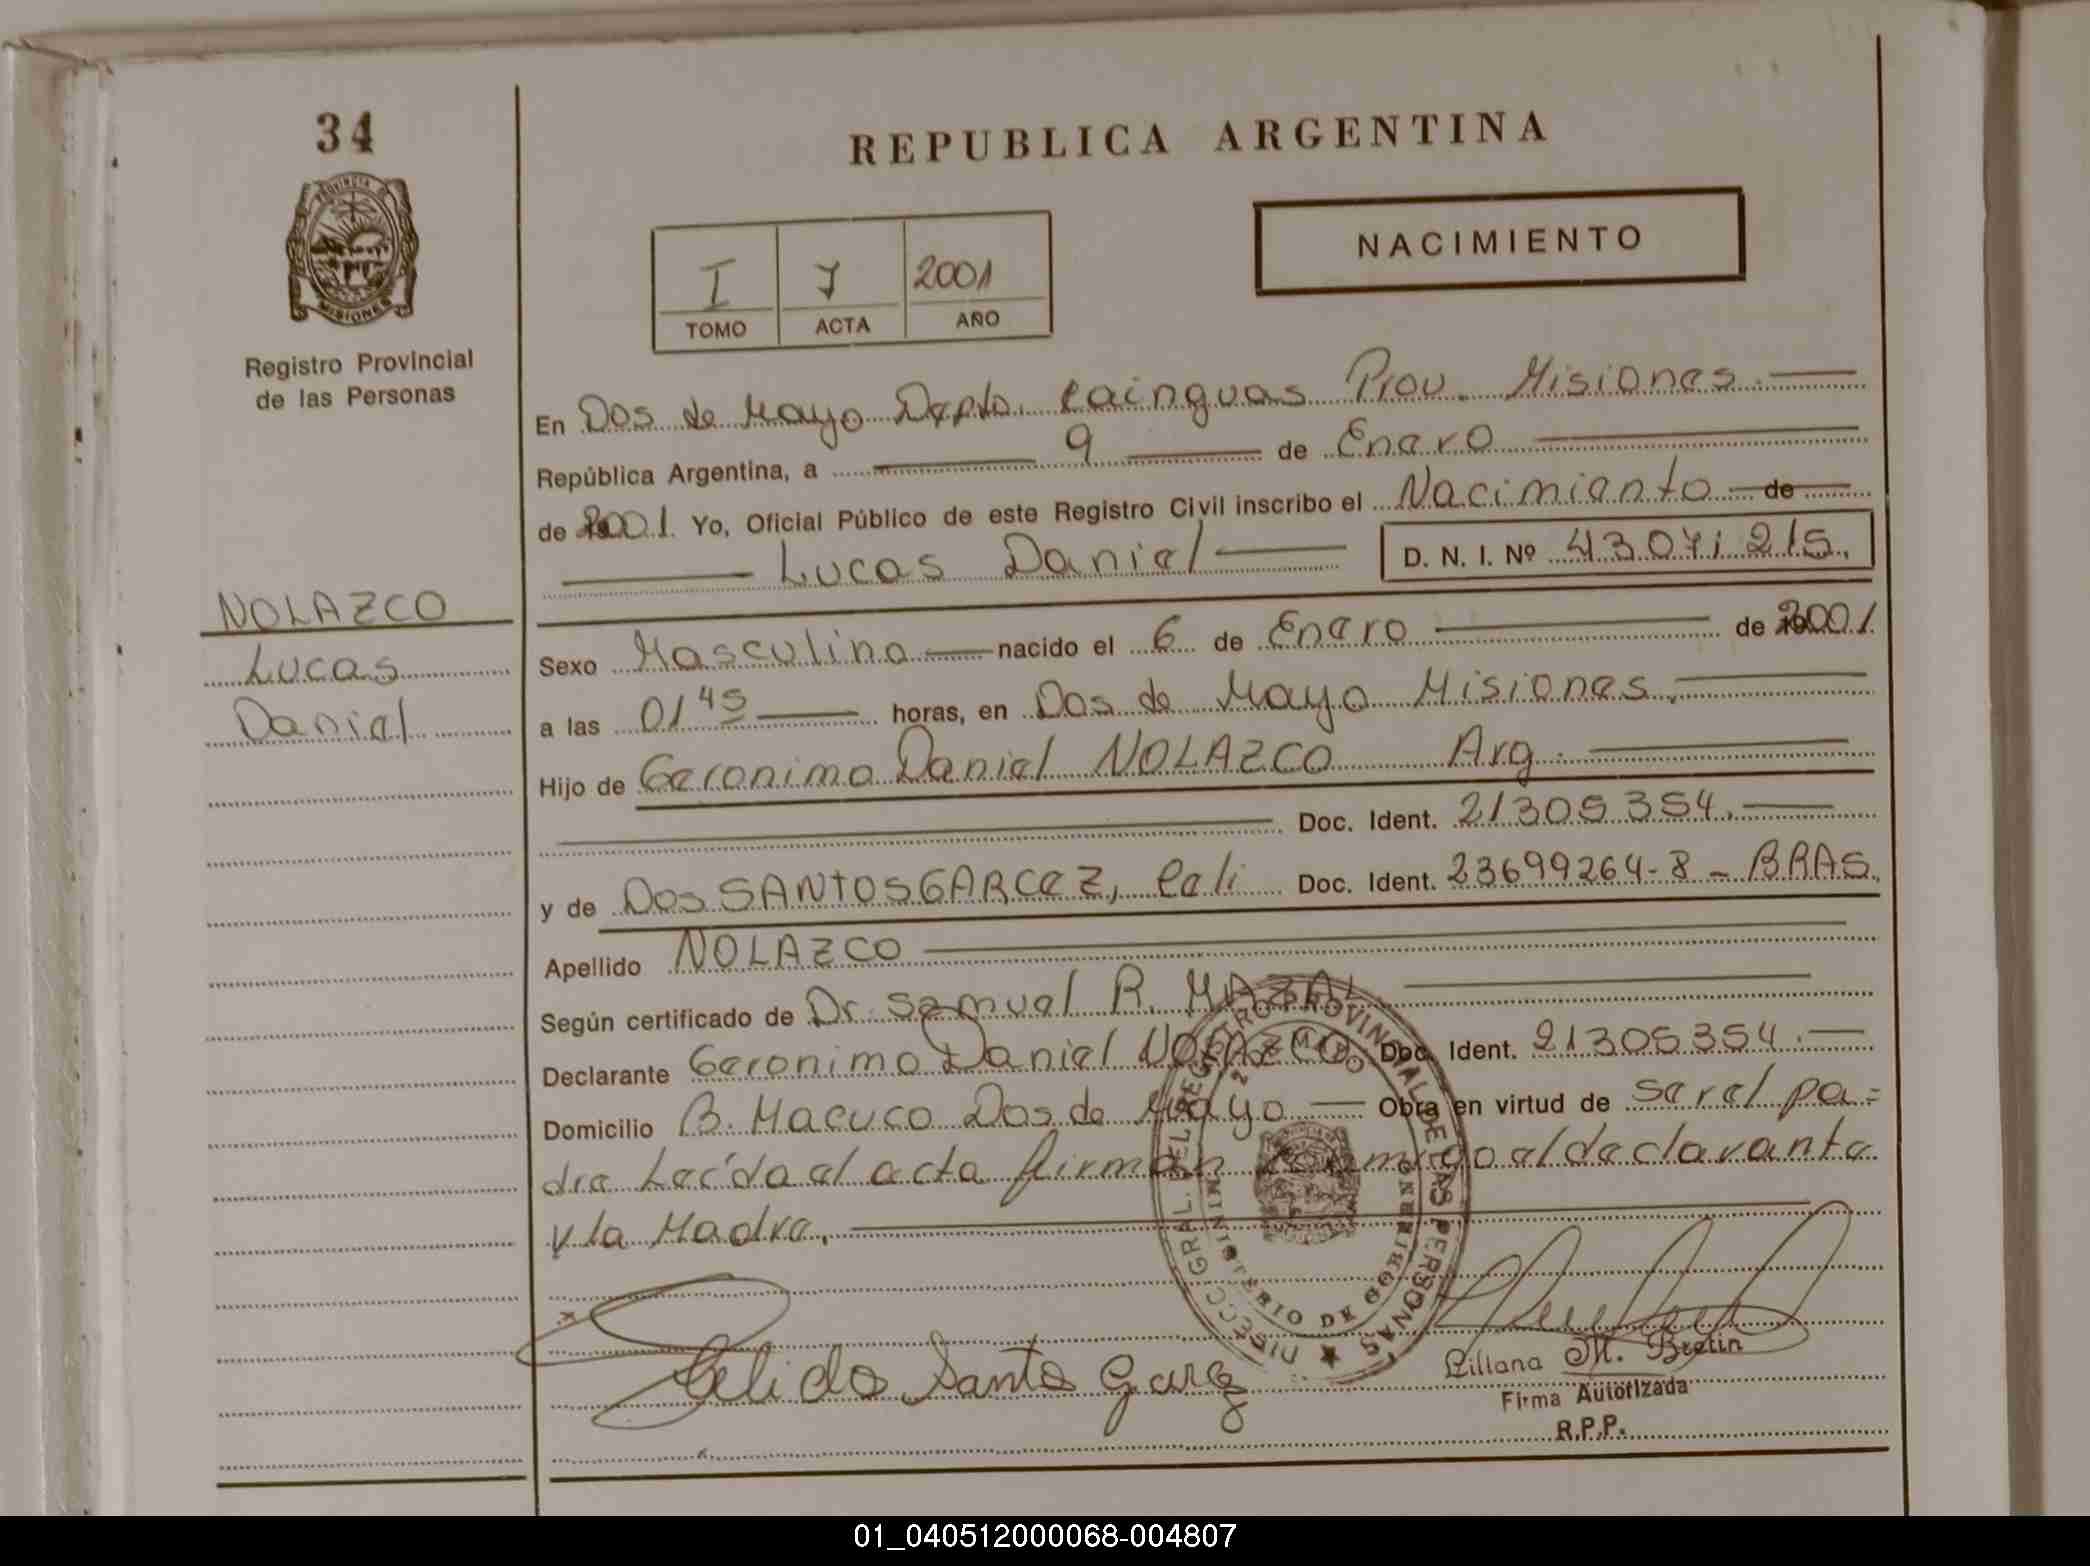 34
REPUBLICA ARGENTINA
PROVINCIA D
MISIONES
NACIMIENTO
I 7 2001
TOMO ACTA AÑO
Registro Provincial
de las Personas
En Dos de Mayo Depto. Cainguas Prov. Misiones.
República Argentina, a 9 de Enero
de 2001. Yo, Oficial Público de este Registro Civil inscribo el Nacimiento de
Lucas Daniel D. N. I. Nº 43071215.
NOLAZCO
Lucas
Daniel
Sexo Masculino nacido el 6 de Enero de 2001.
a las 01 45 horas, en Dos de Mayo Misiones.
Hijo de Geronimo Daniel NOLAZCO Arg.
Doc. Ident. 21305354.
y de Dos SANTOS GARCEZ, Celi Doc. Ident. 23699264-8 - BRAS.
Apellido NOLAZCO
Según certificado de Dr. Samuel R. MAZAL
Declarante Geronimo Daniel NOLAZCO Doc. Ident. 21305354.
Domicilio B. Macuco Dos de Mayo Obra en virtud de ser el pa=
dre Leída el acta firman conmigo el declarante
y la Madre.
DIRECC. GRAL. DEL REGISTRO PROVINCIAL DE LAS PERSONAS
MINISTERIO DE GOBIERNO
2 DE MAYO
Celi do Santo Garcez
Liliana M. Bretin
Firma Autorizada
R.P.P.
01_040512000068-004807